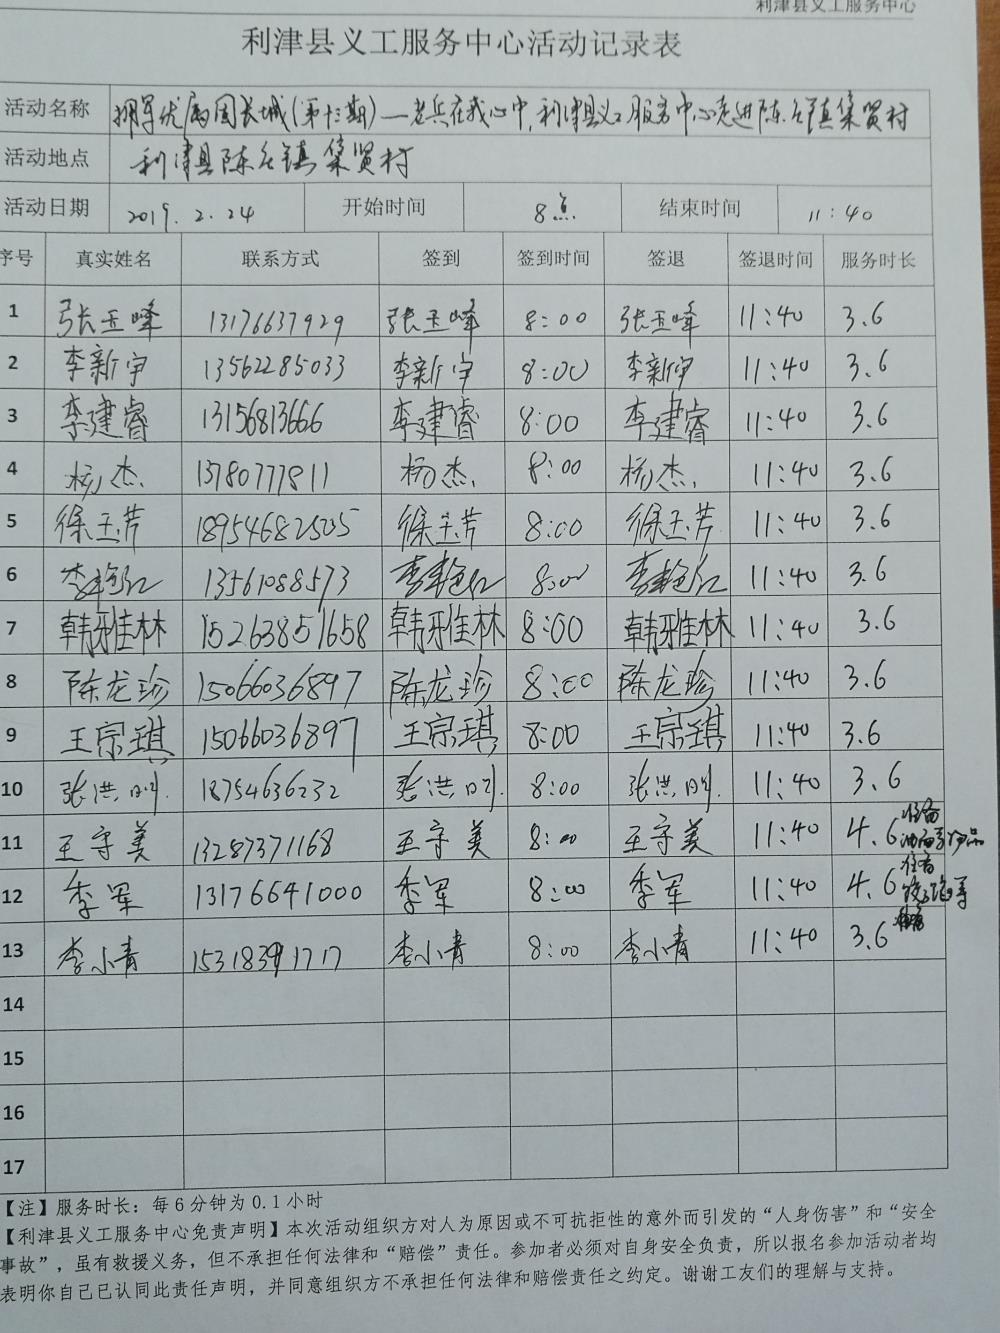 利津县义工服务中心
利津县义工服务中心活动记录表
活动名称 拥军优属固长城(第十三期)—老兵在我心中,利津县义工服务中心走进陈庄镇集贤村
活动地点 利津县陈庄镇集贤村
活动日期 2019.2.24 开始时间 8点 结束时间 11:40
序号 真实姓名 联系方式 签到 签到时间 签退 签退时间 服务时长
1 张玉峰 13176637929 张玉峰 8:00 张玉峰 11:40 3.6
2 李新宇 13562285033 李新宇 8:00 李新宇 11:40 3.6
3 李建睿 13156813666 李建睿 8:00 李建睿 11:40 3.6
4 杨杰 13780777811 杨杰 8:00 杨杰 11:40 3.6
5 徐玉芳 18954682505 徐玉芳 8:00 徐玉芳 11:40 3.6
6 李艳红 13561088573 李艳红 8:00 李艳红 11:40 3.6
7 韩雅佳林 15263851658 韩雅佳林 8:00 韩雅佳林 11:40 3.6
8 陈龙珍 15066036897 陈龙珍 8:00 陈龙珍 11:40 3.6
9 王宗琪 15066036897 王宗琪 8:00 王宗琪 11:40 3.6
10 张洪明 18754636232 张洪明 8:00 张洪明 11:40 3.6
11 王守美 13287371168 王守美 8:00 王守美 11:40 4.6 准备
12 季军 13176641000 季军 8:00 季军 11:40 4.6 准备
13 李小青 15318391717 李小青 8:00 李小青 11:40 3.6
14
15
16
17
【注】服务时长:每6分钟为0.1小时
【利津县义工服务中心免责声明】本次活动组织方对人为原因或不可抗拒性的意外而引发的“人身伤害”和“安全
事故”,虽有救援义务,但不承担任何法律和“赔偿”责任。参加者必须对自身安全负责,所以报名参加活动者均
表明你自己已认同此责任声明,并同意组织方不承担任何法律和赔偿责任之约定。谢谢工友们的理解与支持。